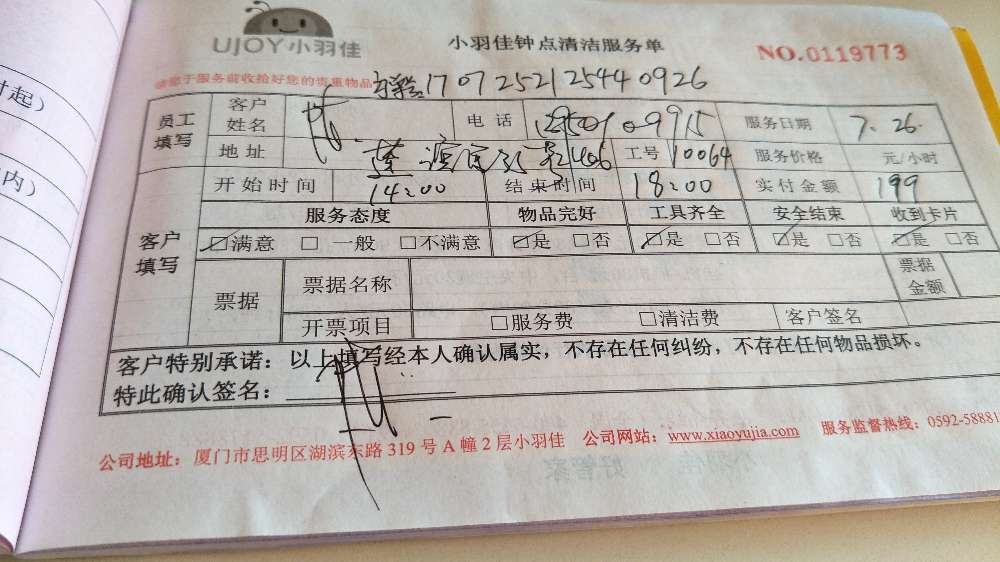 时起）
内）
UJOY小羽佳
小羽佳钟点清洁服务单
NO.0119773
请您于服务前收拾好您的贵重物品 1707252125440926
员工填写 客户姓名 电话 服务日期 7.26.
地址 工号 10064 服务价格 元/小时
开始时间 14:00 结束时间 18:00 实付金额 199
客户填写 服务态度 物品完好 工具齐全 安全结束 收到卡片
☑满意 □一般 □不满意 ☑是 □否 ☑是 □否 ☑是 □否 ☑是 □否
票据 票据名称 票据金额
开票项目 □服务费 □清洁费 客户签名
客户特别承诺：以上填写经本人确认属实，不存在任何纠纷，不存在任何物品损坏。
特此确认签名：
公司地址：厦门市思明区湖滨东路 319 号 A 幢 2 层小羽佳 公司网站：www.xiaoyujia.com 服务监督热线：0592-58881